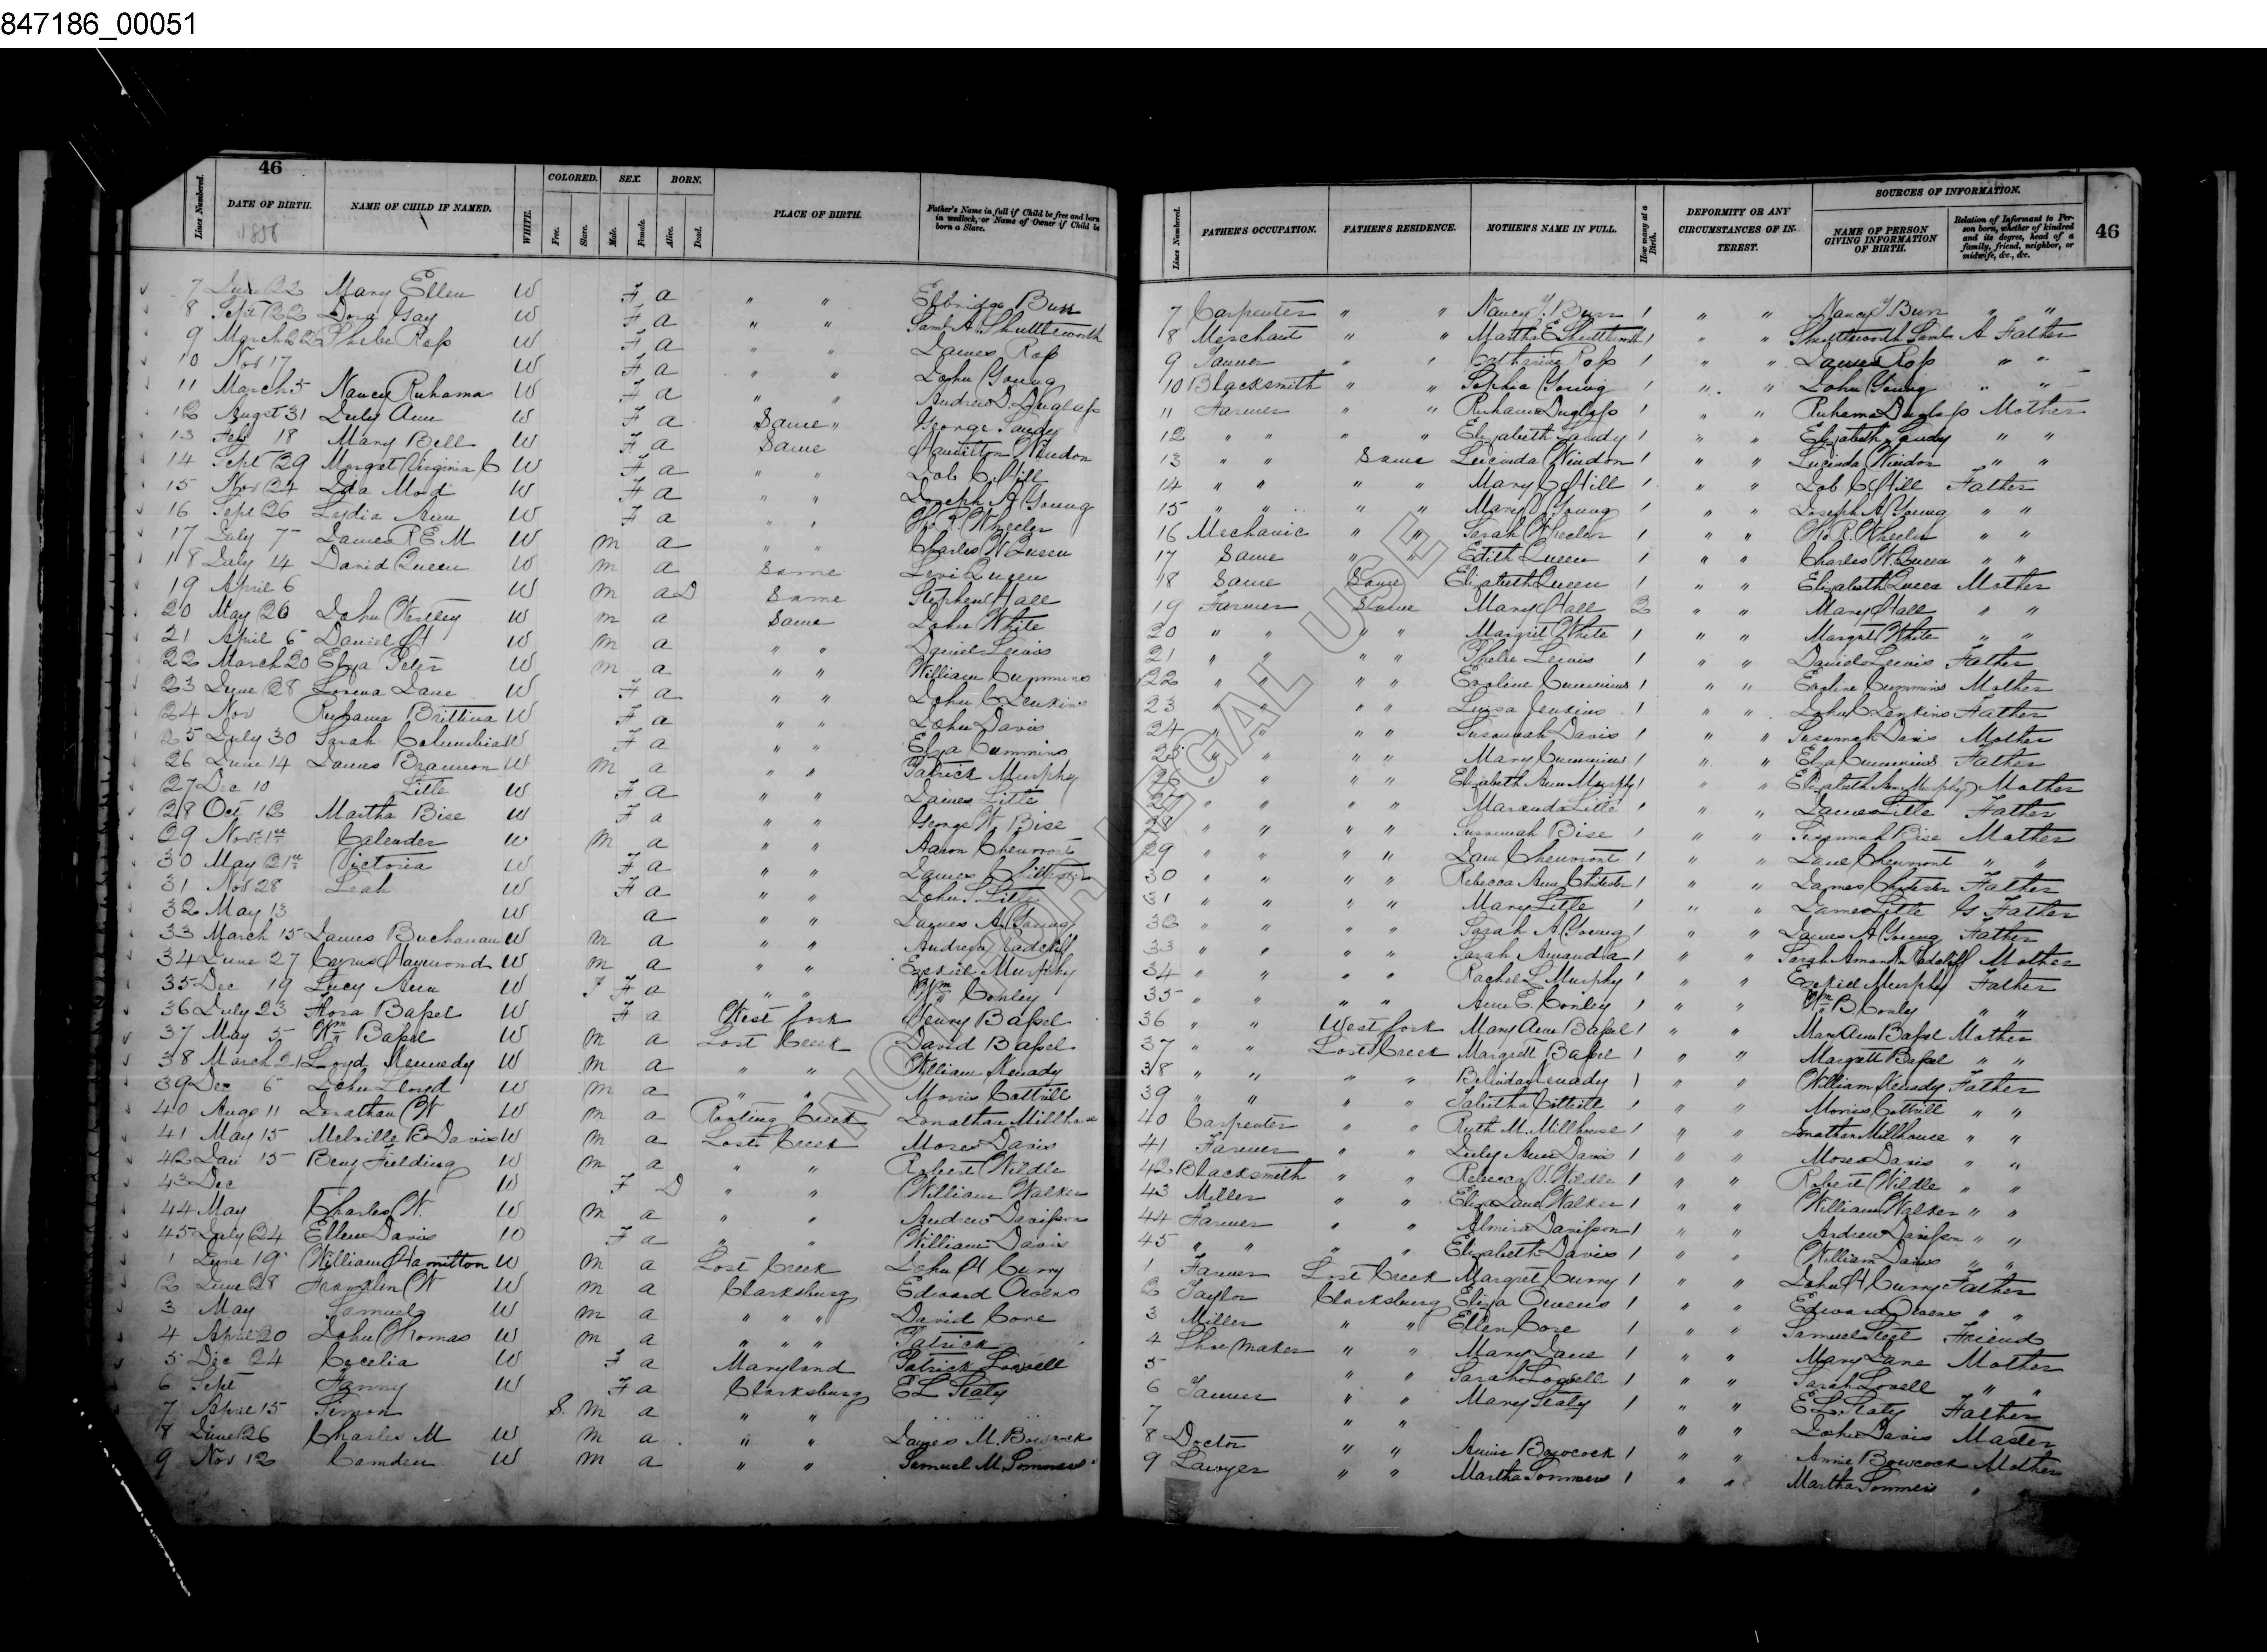 847186_00051
46
Lines Numbered.
DATE OF BIRTH.
1858
NAME OF CHILD IF NAMED.
WHITE.
COLORED.
Free.
Slave.
SEX.
Male.
Female.
BORN.
Alive.
Dead.
PLACE OF BIRTH.
Father's Name in full if Child be free and born in wedlock, or Name of Owner if Child be born a Slave.
7 June 22 Mary Ellen W F a " " Elbridge Burr
8 Sept 22 Dora Gay W F a " " Saml A. Shuttleworth
9 March 22 Phebe Ross W F a " " James Ross
10 Nov 17 W F a " " John Young
11 March 5 Nancy Ruhama W F a " " Andrew D. Duglass
12 Augst 31 July Ann W F a Same " George Sandy
13 Feb 18 Mary Bell W F a Same Hamilton Windon
14 Sept 29 Margret Virginia C W F a " " Job C. Hill
15 Nov 24 Ida Mod W F a " " Joseph A Young
16 Sept 26 Lydia Ann W F a " " Wheeler
17 July 7 James R E M W m a " " Charles W Queen
18 July 14 David Queen W m a Same Levi Queen
19 April 6 W m a D Same Stephen Hall
20 May 26 John Westley W m a Same John White
21 April 6 Daniel H W m a " " Daniel Lewis
22 March 20 Elza Peter W m a " " William Cummins
23 June 28 Lorena Jane W F a " " John C Jenkins
24 Nov Ruhama Brittina W F a " " John Davis
25 July 30 Sarah Columbia W F a " " Elza Cummins
26 June 14 James Brannon W m a " " Patrick Murphy
27 Dec 10 Little W F a " " James Little
28 Oct 12 Martha Bise W F a " " George W. Bise
29 Nov 1st Calender W m a " " Aaron Cheuvront
30 May 21st Victoria W F a " " James Chittester
31 Nov 28 Leah W F a " " John S. Little
32 May 13 W a " " James A. Young
33 March 15 James Buchanan W m a " " Andrew Radcliff
34 June 27 Cyrus Haymond W m a " " Ezekiel Murphy
35 Dec 19 Lucy Ann W F a " " Wm Conley
36 July 23 Flora Bassel W F a West fork Henry Bassel
37 May 5 Wm Bassel W m a Lost Creek David Bassel
38 March 21 Loyd Kennedy W m a " " William Kenady
39 Dec 6 John Lloyd W m a " " Morris Cottrill
40 Aug 11 Jonathan W W m a Rooting Creek Jonathan Millhouse
41 May 15 Melville B Davis W m a Lost Creek Moses Davis
42 Jan 15 Benj Fielding W m a " " Robert Wildle
43 Dec W F D " " William Walker
44 May Charles W. W m a " " Andrew Davisson
45 July 24 Ellen Davis W F a " " William Davis
1 June 19 William Hamilton W m a Lost Creek John H Curry
2 June 28 Franklin W W m a Clarksburg Edward Owens
3 May Samuel W m a " " " David Core
4 April 20 John Thomas W m a " " " Patrick
5 Dec 24 Cecelia W F a Maryland Patrick Lowell
6 Sept Fanny W F a Clarksburg E L Staty
7 April 15 Simon S. m a " "
8 June 26 Charles M W m a " " James M. Bowcock
9 Nov 12 Camden W m a " " Samuel M. Sommers
Lines Numbered.
FATHER'S OCCUPATION.
FATHER'S RESIDENCE.
MOTHER'S NAME IN FULL.
How many at a Birth.
DEFORMITY OR ANY CIRCUMSTANCES OF INTEREST.
SOURCES OF INFORMATION.
NAME OF PERSON GIVING INFORMATION OF BIRTH.
Relation of Informant to Person born, whether of kindred and its degree, head of a family, friend, neighbor, or midwife, &c., &c.
46
7 Carpenter " " Nancy Y. Burr 1 " " Nancy Y. Burr " "
8 Merchant " " Martha E Shuttleworth 1 " " Shuttleworth Saml A Father
9 Tanner " " Catharine Ross 1 " " James Ross " "
10 Blacksmith " " Sophia Young 1 " " John Young " "
11 Farmer " " Ruhama Duglass 1 " " Ruhama Duglass Mother
12 " " " " Elizabeth Sandy 1 " " Elizabeth Sandy " "
13 " " Same Lucinda Windon 1 " " Lucinda Windon " "
14 " " " " Mary C Hill 1 " " Job C Hill Father
15 " " " " Mary Young 1 " " Joseph A Young " "
16 Mechanic " " Sarah Wheeler 1 " " Wheeler " "
17 Same " " Edith Queen 1 " " Charles W. Queen " "
18 Same Same Elizabeth Queen 1 " " Elizabeth Queen Mother
19 Farmer Same Mary Hall 2 " " Mary Hall " "
20 " " " " Margrit White 1 " " Margrit White " "
21 " " " " Phebe Lewis 1 " " Daniel Lewis Father
22 " " " " Exoline Cummins 1 " " Exoline Cummins Mother
23 " " " " Luisa Jenkins 1 " " John C Jenkins Father
24 " " " " Susannah Davis 1 " " Susannah Davis Mother
25 " " " " Mary Cummins 1 " " Elza Cummins Father
26 " " " " Elizabeth Ann Murphy 1 " " Elizabeth Ann Murphy Mother
27 " " " " Maranda Little 1 " " James Little Father
28 " " " " Susannah Bise 1 " " Susannah Bise Mother
29 " " " " Jane Cheuvront 1 " " Jane Cheuvront " "
30 " " " " Rebecca Ann Chitester 1 " " James Chitester Father
31 " " " " Mary Little 1 " " James Little G Father
32 " " " " Sarah A Young 1 " " James A Young Father
33 " " " " Sarah Amanda 1 " " Sarah Amanda Radcliff Mother
34 " " " " Rachel L Murphy 1 " " Ezekiel Murphy Father
35 " " " " Ann E. Conley 1 " " Wm B. Conley " "
36 " " West fork Mary Ann Bassel 1 " " Mary Ann Bassel Mother
37 " " Lost Creek Margrett Bassel 1 " " Margrett Bassel " "
38 " " " " Belinda Kenady 1 " " William Kenady Father
39 " " " " Tabitha Cottrill 1 " " Morris Cottrill " "
40 Carpenter " " Ruth M. Millhouse 1 " " Jonathan Millhouse " "
41 Farmer " " July Ann Davis 1 " " Moses Davis " "
42 Blacksmith " " Rebecca V. Wildle 1 " " Robert Wildle " "
43 Miller " " Eliza Jane Walker 1 " " William Walker " "
44 Farmer " " Almira Davisson 1 " " Andrew Davisson " "
45 " " " " Elizabeth Davis 1 " " William Davis " "
1 Farmer Lost Creek Margret Curry 1 " " John H Curry Father
2 Taylor Clarksburg Eliza Owens 1 " " Edward Owens " "
3 Miller " " Ellen Core 1 " " Samuel Steel Friend
4 Shoe Maker " " Mary Jane 1 " " Mary Jane Mother
5 " " Sarah Lowell 1 " " Sarah Lovell " "
6 Tanner " " Mary Staty 1 " " E L. Staty Father
7 " " " " John Davis Master
8 Doctor " " Annie Bowcock 1 " " Annie Bowcock Mother
9 Lawyer " " Martha Sommers 1 " " Martha Sommers "
NOT FOR LEGAL USE